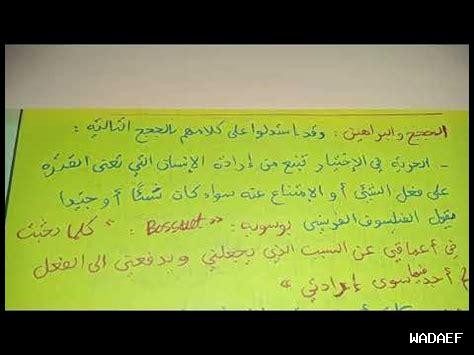 الحجج والبراهين : وقد استدلوا على كلامهم بالحجج التالية :
- الحرية في الإختيار تنبع من إرادة الإنسان التي تعني القدرة
على فعل الشيئ أو الإمتناع عنه سواء كان شيئا أو جيدا
يقول الفيلسوف الفرنسي بوسويه : " Bossuet » كلما بحثت
في أعماقي عن السبب الذي يجعلني ويدفعني الى الفعل
أجد فيها سوى إرادتي "
WADAEF